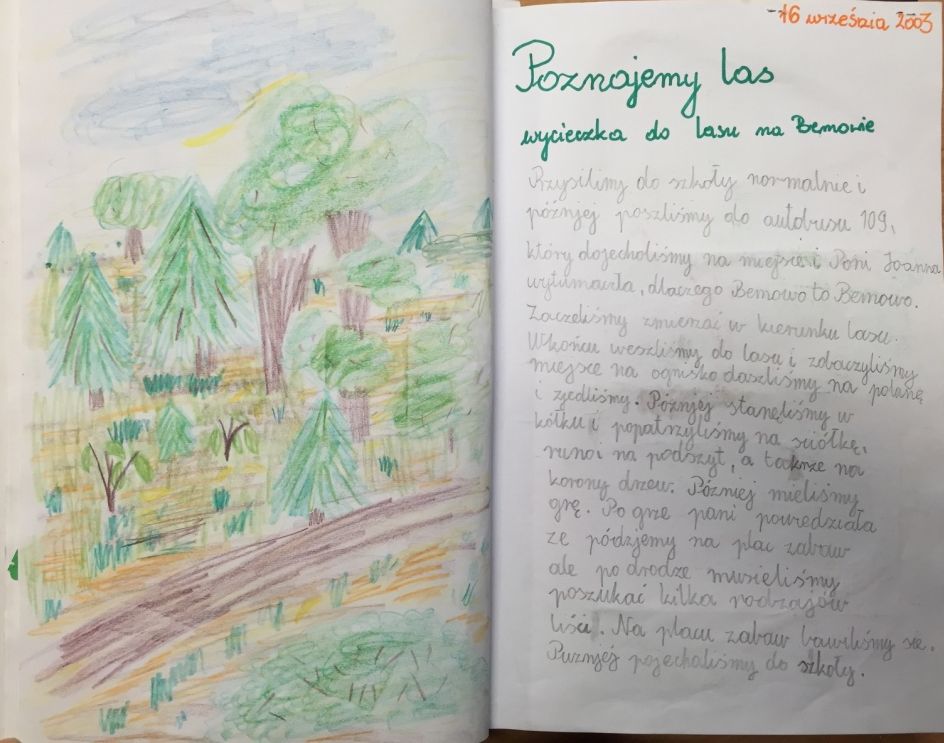 16 września 2003
Poznajemy las
wycieczka do lasu na Bemowie
Przyszliśmy do szkoły normalnie i
późnjej poszliśmy do autobusu 109,
który dojecholiśmy na miejsce i Pani Joanna
wytłumaczła, dlaczego Bemowo to Bemowo.
Zaczeliśmy zmierzać w kierunku lasu.
Wkońcu weszliśmy do lasu i zobaczyliśmy
miejsce na ognisko daszliśmy na polanę
i zjedliśmy. Późnjej stanęliśmy w
kółku i popatrzyliśmy na sciółkę,
runo i na podszyt, a także na
korony drzew. Później mieliśmy
grę. Po grze pani powiedziała
ze pódzjemy na plac zabaw
ale po drodze musieliśmy
poszukać kilka rodzajów
liści. Na placu zabaw bawiliśmy sie.
Puznjej pojechaliśmy do szkoły.